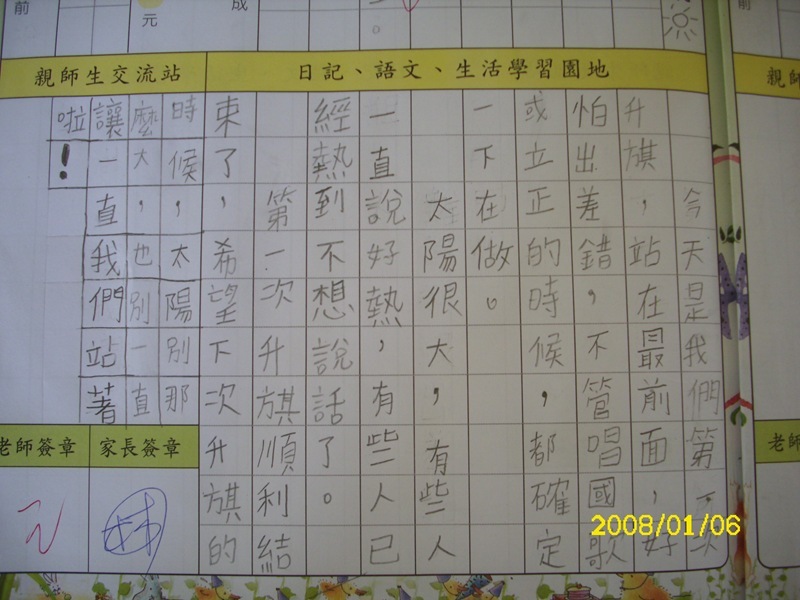 前
元
成
日記、語文、生活學習園地
親師生交流站
今天是我們第一次
升旗,站在最前面,好
怕出差錯,不管唱國歌
或立正的時候,都確定
一下在做。
太陽很大,有些人
一直說好熱,有些人已
經熱到不想說話了。
第一次升旗順利結
束了,希望下次升旗的
時候,太陽別那
麼大,也別一直
讓一直我們站著
啦!
家長簽章
老師簽章
親師
老師
2008/01/06